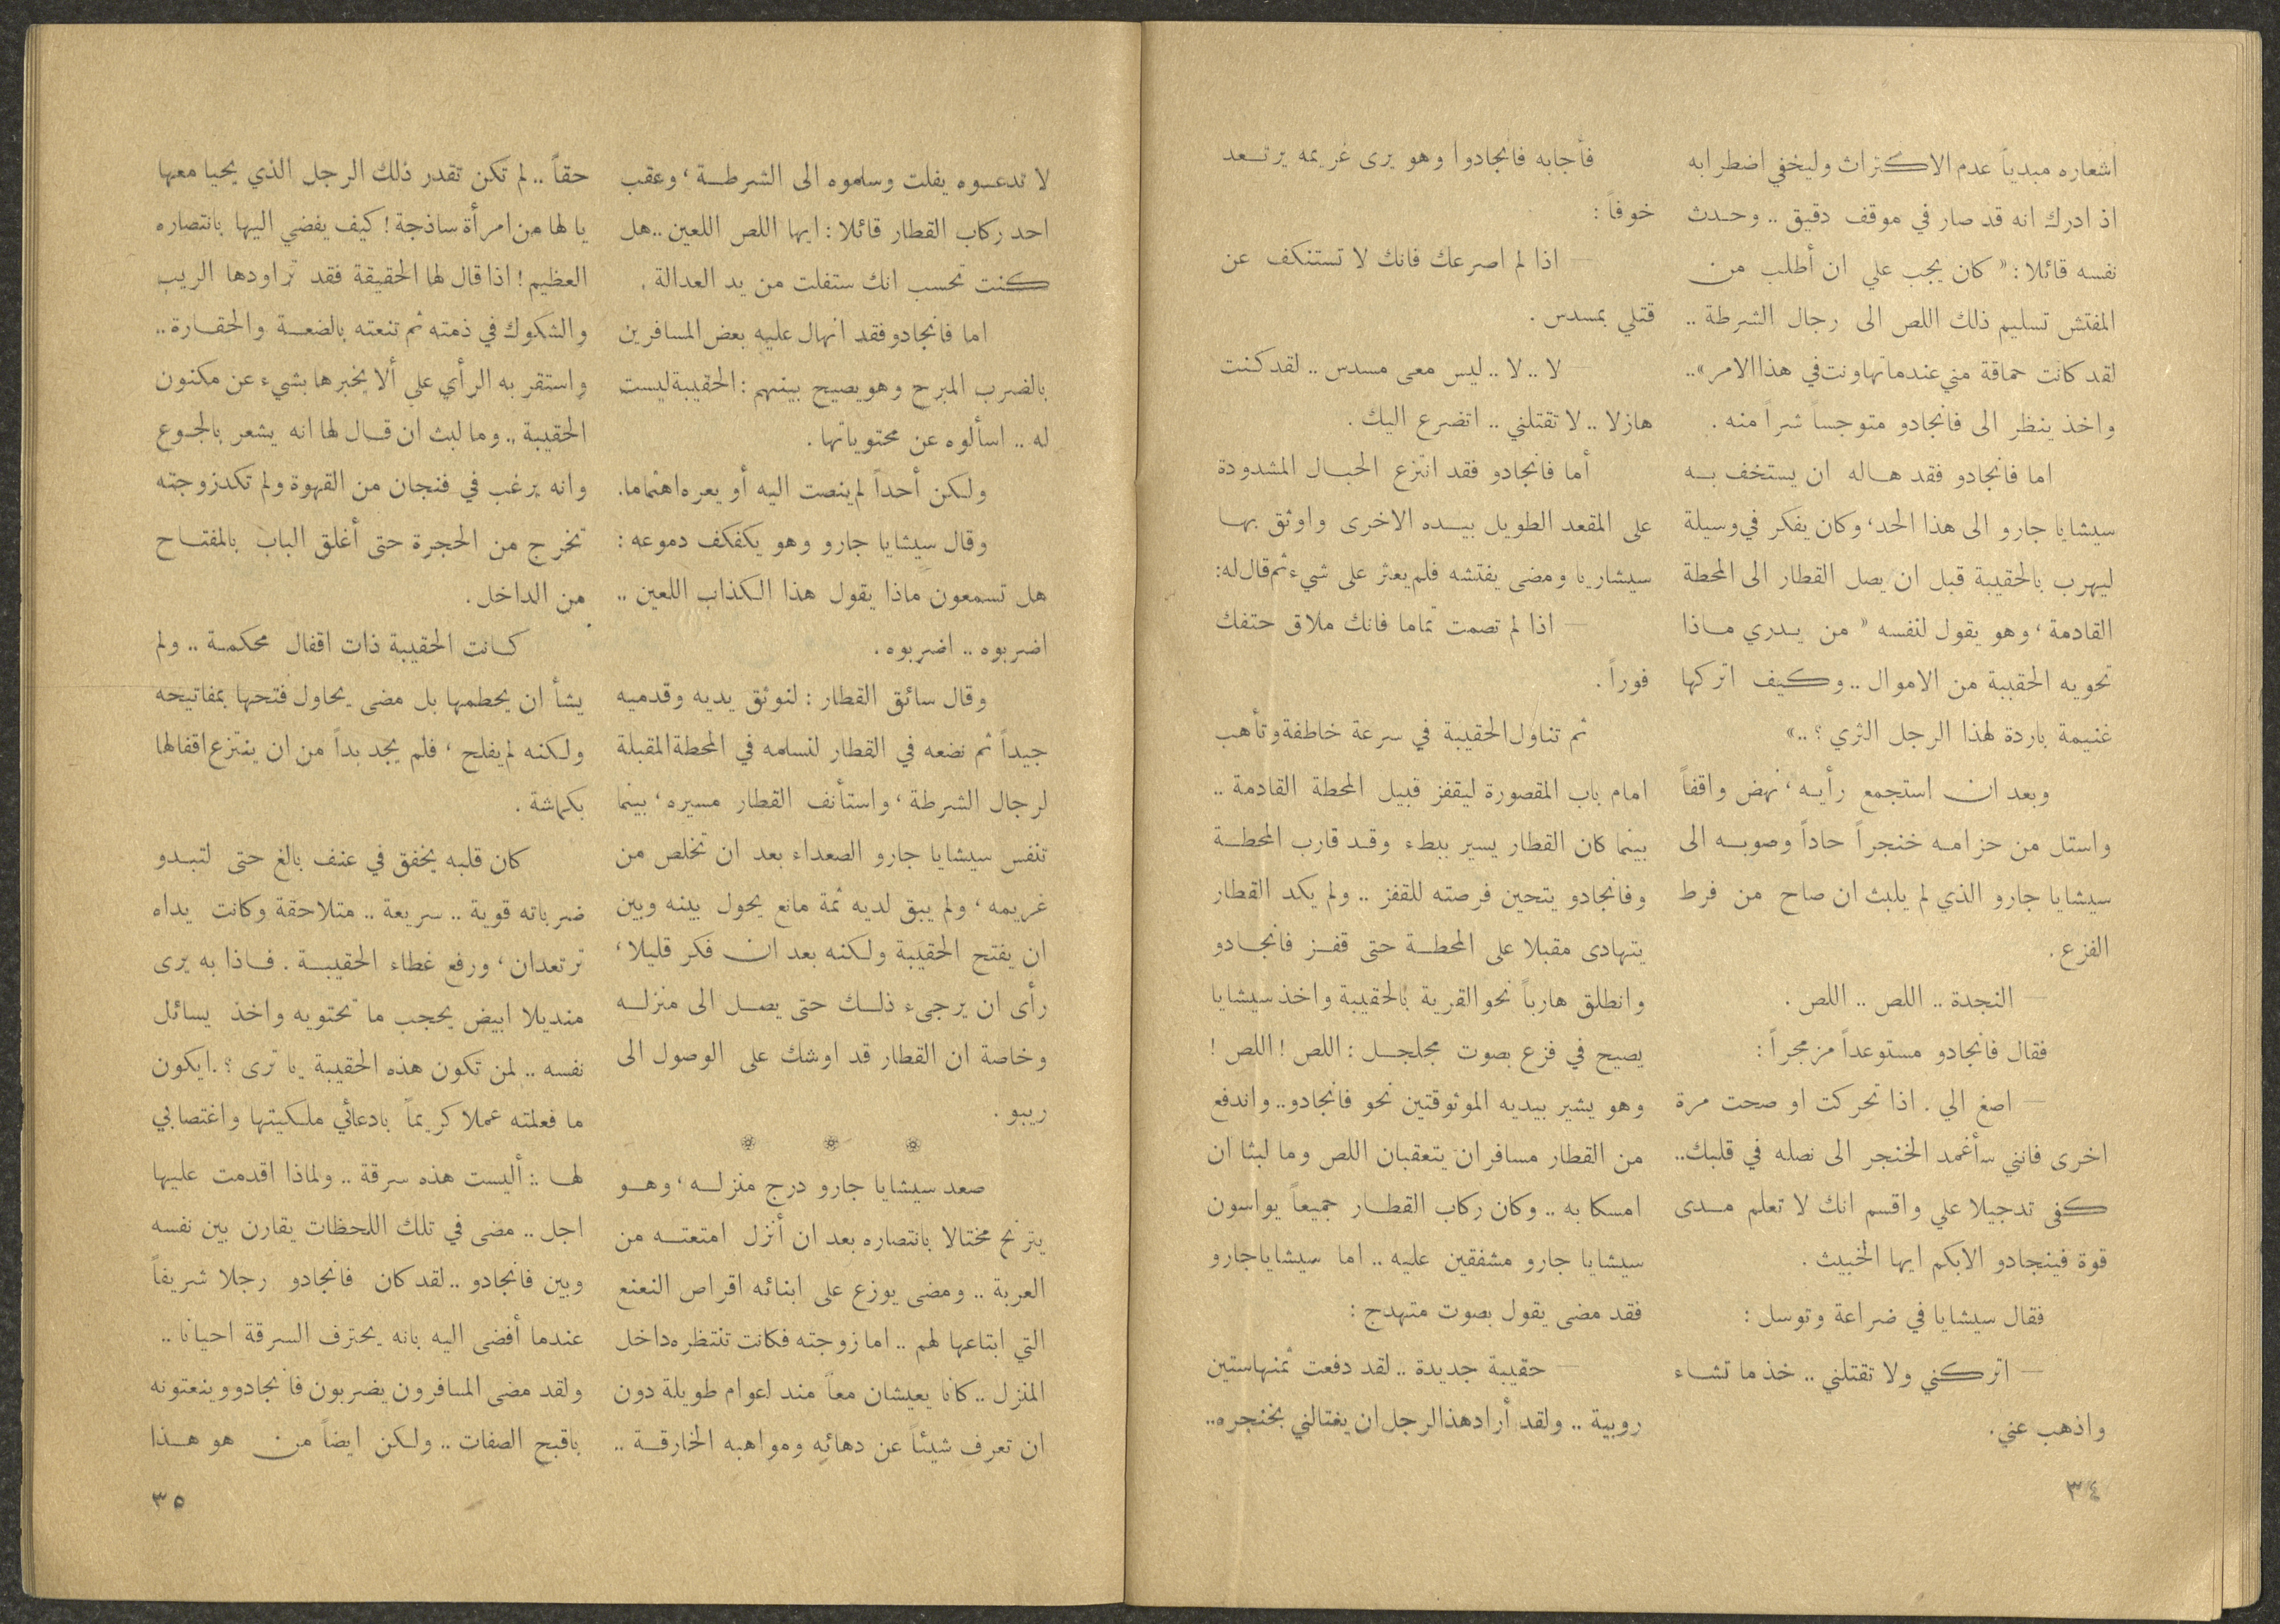 اشعاره مبدياً عدم الاكتراث وليخفي اضطرابه
اذ ادرك انه قد صار في موقف دقيق .. وحدث
نفسه قائلا : « كان يجب علي ان أطلب من
المفتش تسليم ذلك اللص الى رجال الشرطة ..
لقد كانت حماقة مني عندما تهاونت في هذا الامر » ..
واخذ ينظر الى فانجادو متوجساً شراً منه .
اما فانجادو فقد هاله ان يستخف به
سيشايا جارو الى هذا الحد ، وكان يفكر في وسيلة
ليهرب بالحقيبة قبل ان يصل القطار الى المحطة
القادمة ، وهو يقول لنفسه « من يدري ماذا
تحويه الحقيبة من الاموال .. وكيف اتركها
غنيمة باردة لهذا الرجل الثري ؟ .. »
وبعد ان استجمع رأيه ، نهض واقفاً
واستل من حزامه خنجراً حاداً وصوبه الى
سيشايا جارو الذي لم يلبث ان صاح من فرط
الفزع .
— النجدة .. اللص .. اللص .
فقال فانجادو مستوعداً مزمجراً :
— اصغ الي . اذا تحركت او صحت مرة
اخرى فانني سأغمد الخنجر الى نصله في قلبك ..
كفى تدجيلا علي واقسم انك لا تعلم مدى
قوة فينجادو الابكم ايها الخبيث .
فقال سيشايا في ضراعة وتوسل :
— اتركني ولا تقتلني .. خذ ما تشاء
واذهب عني .
٣٤
فأجابه فانجادوا وهو يرى غريمه يرتعد
خوفاً :
— اذا لم اصرعك فانك لا تستنكف عن
قتلي بمسدس .
— لا .. لا .. ليس معى مسدس .. لقد كنت
هازلا .. لا تقتلني .. اتضرع اليك .
أما فانجادو فقد انتزع الحبال المشدودة
على المقعد الطويل بيده الاخرى واوثق بها
سيشاريا ومضى يفتشه فلم يعثر على شيء ثم قال له :
— اذا لم تصمت تماما فانك ملاق حتفك
فوراً .
ثم تناول الحقيبة في سرعة خاطفة وتأهب
امام باب المقصورة ليقفز قبيل المحطة القادمة ..
بينما كان القطار يسير ببطء وقد قارب المحطة
وفانجادو يتحين فرصته للقفز .. ولم يكد القطار
يتهادى مقبلا على المحطة حتى قفز فانجادو
وانطلق هارباً نحو القرية بالحقيبة واخذ سيشايا
يصيح في فزع بصوت مجلجل : اللص ! اللص !
وهو يشير بيديه الموثوقتين نحو فانجادو .. واندفع
من القطار مسافران يتعقبان اللص وما لبثا ان
امسكا به .. وكان ركاب القطار جميعاً يواسون
سيشايا جارو مشفقين عليه .. اما سيشايا جارو
فقد مضى يقول بصوت متهدج :
— حقيبة جديدة .. لقد دفعت ثمنها ستين
روبية .. ولقد أراد هذا الرجل ان يغتالني بخنجره ..
لا تدعوه يفلت وسلموه الى الشرطة ، وعقب
احد ركاب القطار قائلا : ايها اللص اللعين .. هل
كنت تحسب انك ستفلت من يد العدالة .
اما فانجادو فقد انهال عليه بعض المسافرين
بالضرب المبرح وهو يصيح بينهم : الحقيبة ليست
له .. اسألوه عن محتوياتها .
ولكن أحداً لم ينصت اليه أو يعره اهتماما .
وقال سيشايا جارو وهو يكفكف دموعه :
هل تسمعون ماذا يقول هذا الكذاب اللعين ..
اضربوه .. اضربوه .
وقال سائق القطار : لنوثق يديه وقدميه
جيداً ثم نضعه في القطار لنسلمه في المحطة المقبلة
لرجال الشرطة ، واستأنف القطار مسيره ، بينما
تنفس سيشايا جارو الصعداء بعد ان تخلص من
غريمه ، ولم يبق لديه ثمة مانع يحول بينه وبين
ان يفتح الحقيبة ولكنه بعد ان فكر قليلا ،
رأى ان يرجىء ذلك حتى يصل الى منزله
وخاصة ان القطار قد اوشك على الوصول الى
ريبو .
* * *
صعد سيشايا جارو درج منزله ، وهو
يترنح مختالا بانتصاره بعد ان أنزل امتعته من
العربة .. ومضى يوزع على ابنائه اقراص النعنع
التي ابتاعها لهم .. اما زوجته فكانت تنتظره داخل
المنزل .. كانا يعيشان معاً منذ اعوام طويلة دون
ان تعرف شيئاً عن دهائه ومواهبه الخارقة ..
حقاً .. لم تكن تقدر ذلك الرجل الذي يحيا معها
يا لها من امرأة ساذجة ! كيف يفضي اليها بانتصاره
العظيم ! اذا قال لها الحقيقة فقد تراودها الريب
والشكوك في ذمته ثم تنعته بالضعة والحقارة ..
واستقر به الرأي على ألا يخبرها بشيء عن مكنون
الحقيبة .. وما لبث ان قال لها انه يشعر بالجوع
وانه يرغب في فنجان من القهوة ولم تكد زوجته
تخرج من الحجرة حتى أغلق الباب بالمفتاح
من الداخل .
كانت الحقيبة ذات اقفال محكمة .. ولم
يشأ ان يحطمها بل مضى يحاول فتحها بمفاتيحه
ولكنه لم يفلح ، فلم يجد بداً من ان ينتزع اقفالها
بكماشة .
كان قلبه يخفق في عنف بالغ حتى لتبدو
ضرباته قوية .. سريعة .. متلاحقة وكانت يداه
ترتعدان ، ورفع غطاء الحقيبة . فاذا به يرى
منديلا ابيض يحجب ما تحتويه واخذ يسائل
نفسه .. لمن تكون هذه الحقيبة يا ترى ؟ . ايكون
ما فعلته عملا كريماً بادعائي ملكيتها واغتصابي
لها .: أليست هذه سرقة .. ولماذا اقدمت عليها
اجل .. مضى في تلك اللحظات يقارن بين نفسه
وبين فانجادو .. لقد كان فانجادو رجلا شريفاً
عندما أفضى اليه بانه يحترف السرقة احيانا ..
ولقد مضى المسافرون يضربون فانجادو وينعتونه
باقبح الصفات .. ولكن ايضاً من هو هذا
٣٥